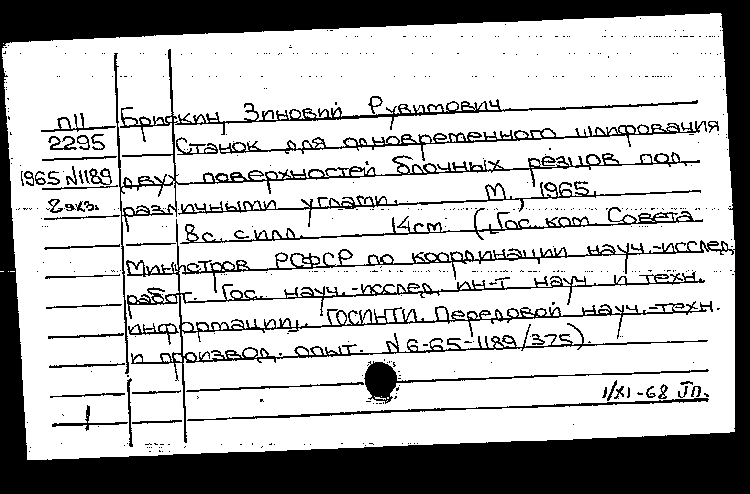 П11 Брискин, Зиновий Рувимович
2295 Станок для одновременного шлифования
1965 N1189 двух поверхностей блочных резцов под
2 экз. различными углами. М., 1965.
8 с. с илл. 14 см. (Гос. ком. Совета
Министров РСФСР по координации науч.-исслед.
работ. Гос. науч.-исслед. ин-т науч. и техн.
информации. ГОСИНТИ. Передовой науч.-техн.
и производ. опыт. N 6-65-1189/375).
1/XI-68